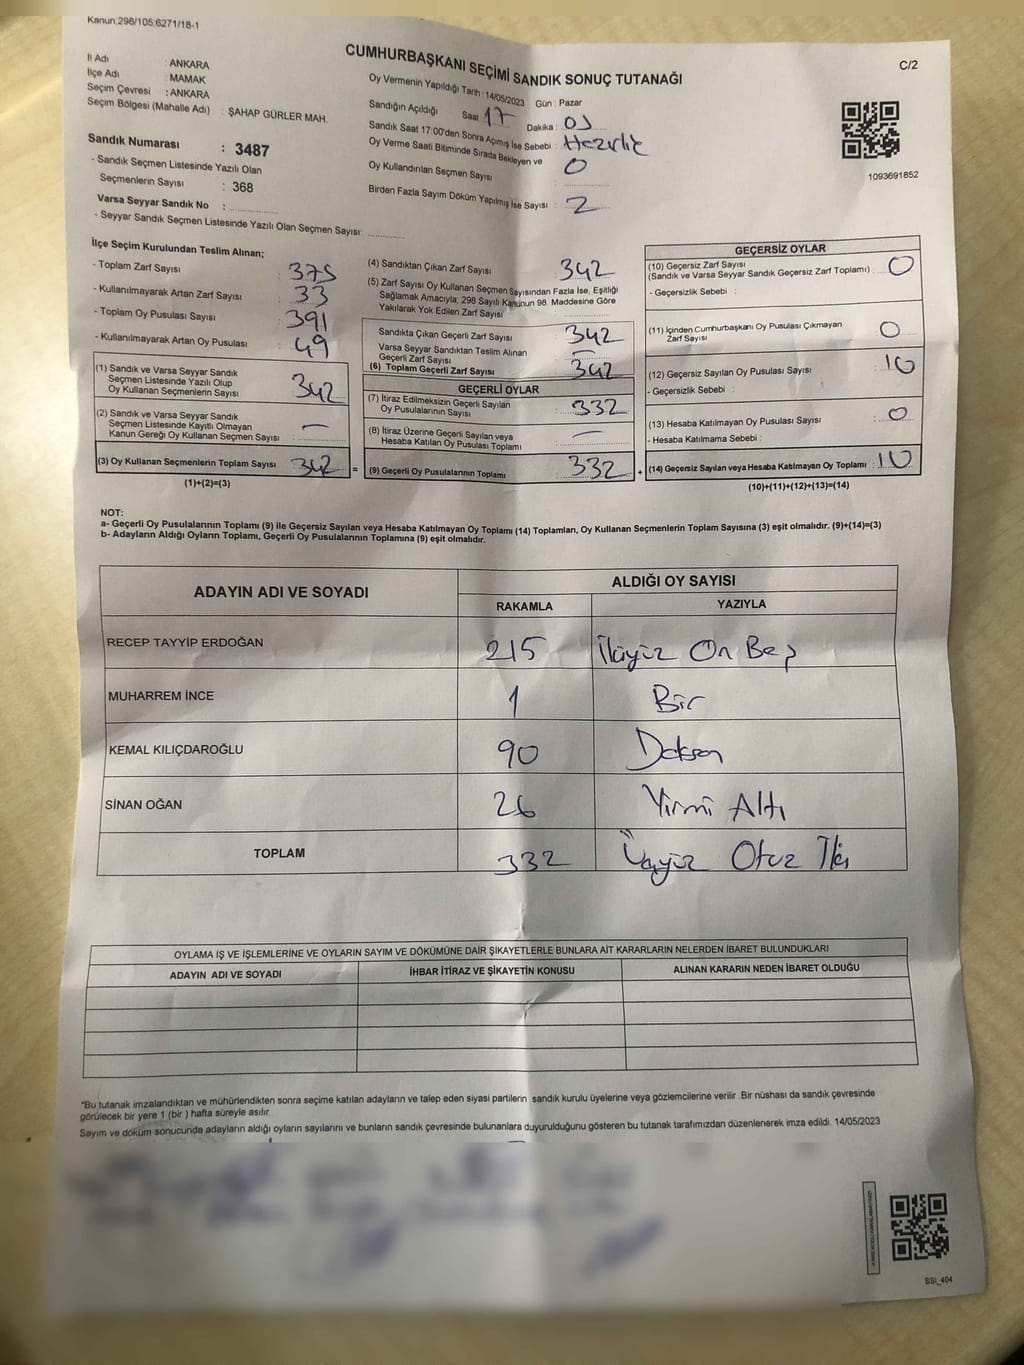 Kanun;298/105;6271/18-1
C/2
CUMHURBAŞKANI SEÇİMİ SANDIK SONUÇ TUTANAĞI
İl Adı : ANKARA
İlçe Adı : MAMAK
Seçim Çevresi : ANKARA
Seçim Bölgesi (Mahalle Adı) : ŞAHAP GÜRLER MAH.
Sandık Numarası : 3487
- Sandık Seçmen Listesinde Yazılı Olan
Seçmenlerin Sayısı : 368
Varsa Seyyar Sandık No :
- Seyyar Sandık Seçmen Listesinde Yazılı Olan Seçmen Sayısı:
Oy Vermenin Yapıldığı Tarih : 14/05/2023 Gün : Pazar
Sandığın Açıldığı Saat : 17 Dakika :
Sandık Saat 17:00'den Sonra Açmış İse Sebebi : Hazırlık
Oy Verme Saati Bitiminde Sırada Bekleyen ve
Oy Kullandırılan Seçmen Sayısı : 0
Birden Fazla Sayım Döküm Yapılmış İse Sayısı : 2
1093691852
İlçe Seçim Kurulundan Teslim Alınan;
- Toplam Zarf Sayısı : 375
- Kullanılmayarak Artan Zarf Sayısı : 33
- Toplam Oy Pusulası Sayısı : 391
- Kullanılmayarak Artan Oy Pusulası : 49
(1) Sandık ve Varsa Seyyar Sandık
Seçmen Listesinde Yazılı Olup
Oy Kullanan Seçmenlerin Sayısı : 342
(2) Sandık ve Varsa Seyyar Sandık
Seçmen Listesinde Kayıtlı Olmayan
Kanun Gereği Oy Kullanan Seçmen Sayısı : —
(3) Oy Kullanan Seçmenlerin Toplam Sayısı : 342 =
(1)+(2)=(3)
(4) Sandıktan Çıkan Zarf Sayısı : 342
(5) Zarf Sayısı Oy Kullanan Seçmen Sayısından Fazla İse, Eşitliği
Sağlamak Amacıyla; 298 Sayılı Kanunun 98. Maddesine Göre
Yakılarak Yok Edilen Zarf Sayısı :
Sandıkta Çıkan Geçerli Zarf Sayısı : 342
Varsa Seyyar Sandıktan Teslim Alınan
Geçerli Zarf Sayısı : —
(6) Toplam Geçerli Zarf Sayısı : 342
GEÇERLİ OYLAR
(7) İtiraz Edilmeksizin Geçerli Sayılan
Oy Pusulalarının Sayısı : 332
(8) İtiraz Üzerine Geçerli Sayılan veya
Hesaba Katılan Oy Pusulası Toplamı : —
(9) Geçerli Oy Pusulalarının Toplamı : 332 +
GEÇERSİZ OYLAR
(10) Geçersiz Zarf Sayısı
(Sandık ve Varsa Seyyar Sandık Geçersiz Zarf Toplamı) : 0
- Geçersizlik Sebebi :
(11) İçinden Cumhurbaşkanı Oy Pusulası Çıkmayan
Zarf Sayısı : 0
(12) Geçersiz Sayılan Oy Pusulası Sayısı : 10
- Geçersizlik Sebebi :
(13) Hesaba Katılmayan Oy Pusulası Sayısı : 0
- Hesaba Katılmama Sebebi :
(14) Geçersiz Sayılan veya Hesaba Katılmayan Oy Toplamı : 10
(10)+(11)+(12)+(13)=(14)
NOT:
a- Geçerli Oy Pusulalarının Toplamı (9) ile Geçersiz Sayılan veya Hesaba Katılmayan Oy Toplamı (14) Toplamları, Oy Kullanan Seçmenlerin Toplam Sayısına (3) eşit olmalıdır. (9)+(14)=(3)
b- Adayların Aldığı Oyların Toplamı, Geçerli Oy Pusulalarının Toplamına (9) eşit olmalıdır.
ADAYIN ADI VE SOYADI
ALDIĞI OY SAYISI
RAKAMLA YAZIYLA
RECEP TAYYİP ERDOĞAN 215 İkiyüz On Beş
MUHARREM İNCE 1 Bir
KEMAL KILIÇDAROĞLU 90 Doksan
SİNAN OĞAN 26 Yirmi Altı
TOPLAM 332 Üçyüz Otuz İki
OYLAMA İŞ VE İŞLEMLERİNE VE OYLARIN SAYIM VE DÖKÜMÜNE DAİR ŞİKAYETLERLE BUNLARA AİT KARARLARIN NELERDEN İBARET BULUNDUKLARI
ADAYIN ADI VE SOYADI İHBAR İTİRAZ VE ŞİKAYETİN KONUSU ALINAN KARARIN NEDEN İBARET OLDUĞU
*Bu tutanak imzalandıktan ve mühürlendikten sonra seçime katılan adayların ve talep eden siyasi partilerin sandık kurulu üyelerine veya gözlemcilerine verilir .Bir nüshası da sandık çevresinde
görülecek bir yere 1 (bir ) hafta süreyle asılır.
Sayım ve döküm sonucunda adayların aldığı oyların sayılarını ve bunların sandık çevresinde bulunanlara duyurulduğunu gösteren bu tutanak tarafımızdan düzenlenerek imza edildi. 14/05/2023
SSI_404